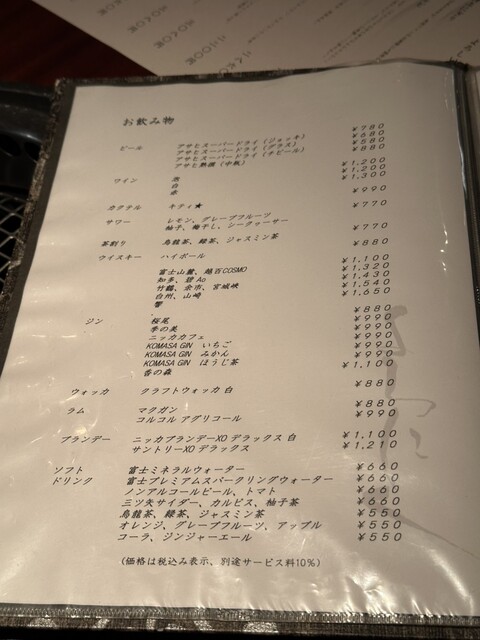 お飲み物
ビール アサヒスーパードライ(ジョッキ) ¥780
アサヒスーパードライ(グラス) ¥680
アサヒスーパードライ(チビール) ¥580
アサヒ熟撰(中瓶) ¥880
ワイン 泡 ¥1,200
白 ¥1,200
赤 ¥1,300
カクテル キティ★ ¥990
サワー レモン、グレープフルーツ ¥770
柚子、梅干し、シークァーサー
茶割り 烏龍茶、緑茶、ジャスミン茶 ¥770
ウイスキー ハイボール ¥880
富士山麓、越百COSMO ¥1,100
知多、碧Ao ¥1,320
竹鶴、余市、宮城峡 ¥1,430
白州、山崎 ¥1,540
響 ¥1,650
ジン 桜尾 ¥880
季の美 ¥990
ニッカカフェ ¥990
KOMASA GIN いちご ¥990
KOMASA GIN みかん ¥990
KOMASA GIN ほうじ茶 ¥990
香の森 ¥1,100
ウォッカ クラフトウォッカ 白 ¥880
ラム マクガン ¥880
コルコル アグリコール ¥990
ブランデー ニッカブランデーXO デラックス 白 ¥1,100
サントリーXO デラックス ¥1,210
ソフト 富士ミネラルウォーター ¥660
ドリンク 富士プレミアムスパークリングウォーター ¥660
ノンアルコールビール、トマト ¥660
三ツ矢サイダー、カルピス、柚子茶 ¥660
烏龍茶、緑茶、ジャスミン茶 ¥550
オレンジ、グレープフルーツ、アップル ¥550
コーラ、ジンジャーエール ¥550
(価格は税込み表示、別途サービス料10%)